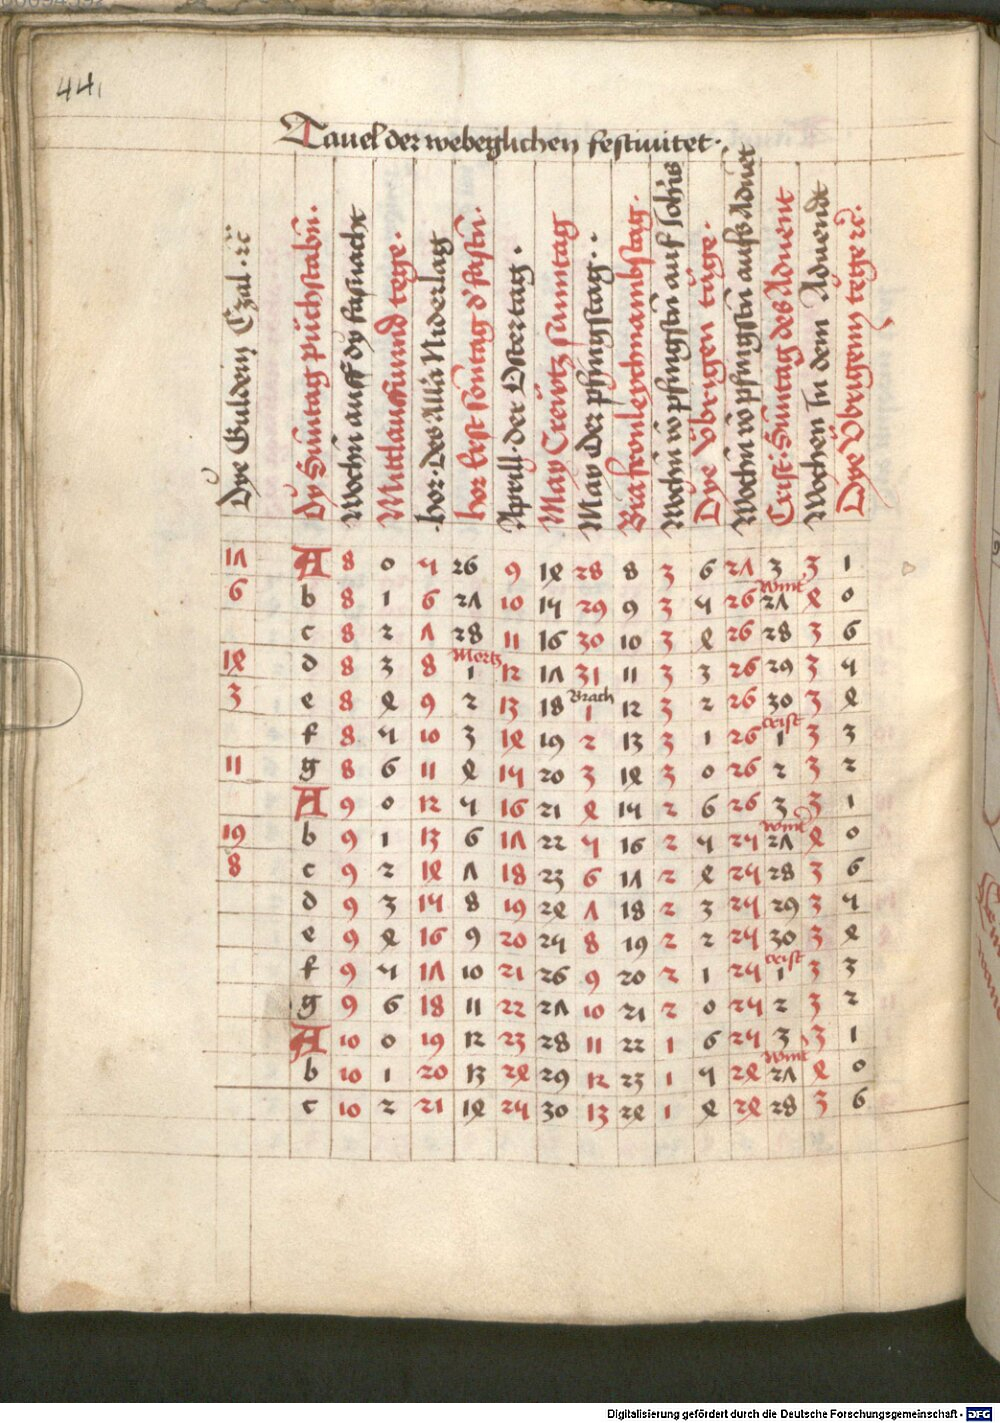 44
Tauel der webeglichen festiuitet
Dye Guldein Czal
Dy Suntag puchstabn
Wochn auff dy fasnacht
Mittlauffund tege
hor des alla Niderlag
hor erst sontag d' fastn
Aprill der Ostertag
May Creutz Sunntag
May der pfingstag
Bra fronleychnambstag
Wochn vo pfingstn auf
Dye Vbrigen tage
Wochn vo pfingstn aufs Aduet
Crist Suntag des Aduent
Wochen In dem Aduendt
Dye Vbrigenn tege
17 A 8 0 5 26 9 14 28 8 3 6 27 3 3 1
6 b 8 1 6 27 10 15 29 9 3 5 26 Wint 27 4 0
c 8 2 7 28 11 16 30 10 3 4 26 28 3 6
14 d 8 3 8 Mertz 1 12 17 31 11 3 3 26 29 3 5
3 e 8 4 9 2 13 18 Brach 1 12 3 2 26 30 3 4
f 8 5 10 3 14 19 2 13 3 1 26 Crist 1 3 3
11 g 8 6 11 4 15 20 3 14 3 0 26 2 3 2
A 9 0 12 5 16 21 4 15 2 6 26 3 3 1
19 b 9 1 13 6 17 22 5 16 2 5 25 Wint 27 4 0
8 c 9 2 14 7 18 23 6 17 2 4 25 28 3 6
d 9 3 15 8 19 24 7 18 2 3 25 29 3 5
e 9 4 16 9 20 25 8 19 2 2 25 30 3 4
f 9 5 17 10 21 26 9 20 2 1 25 Crist 1 3 3
g 9 6 18 11 22 27 10 21 2 0 25 2 3 2
A 10 0 19 12 23 28 11 22 1 6 25 3 3 1
b 10 1 20 13 24 29 12 23 1 5 24 Wint 27 4 0
c 10 2 21 14 25 30 13 24 1 4 24 28 3 6
Digitalisierung gefördert durch die Deutsche Forschungsgemeinschaft - DFG